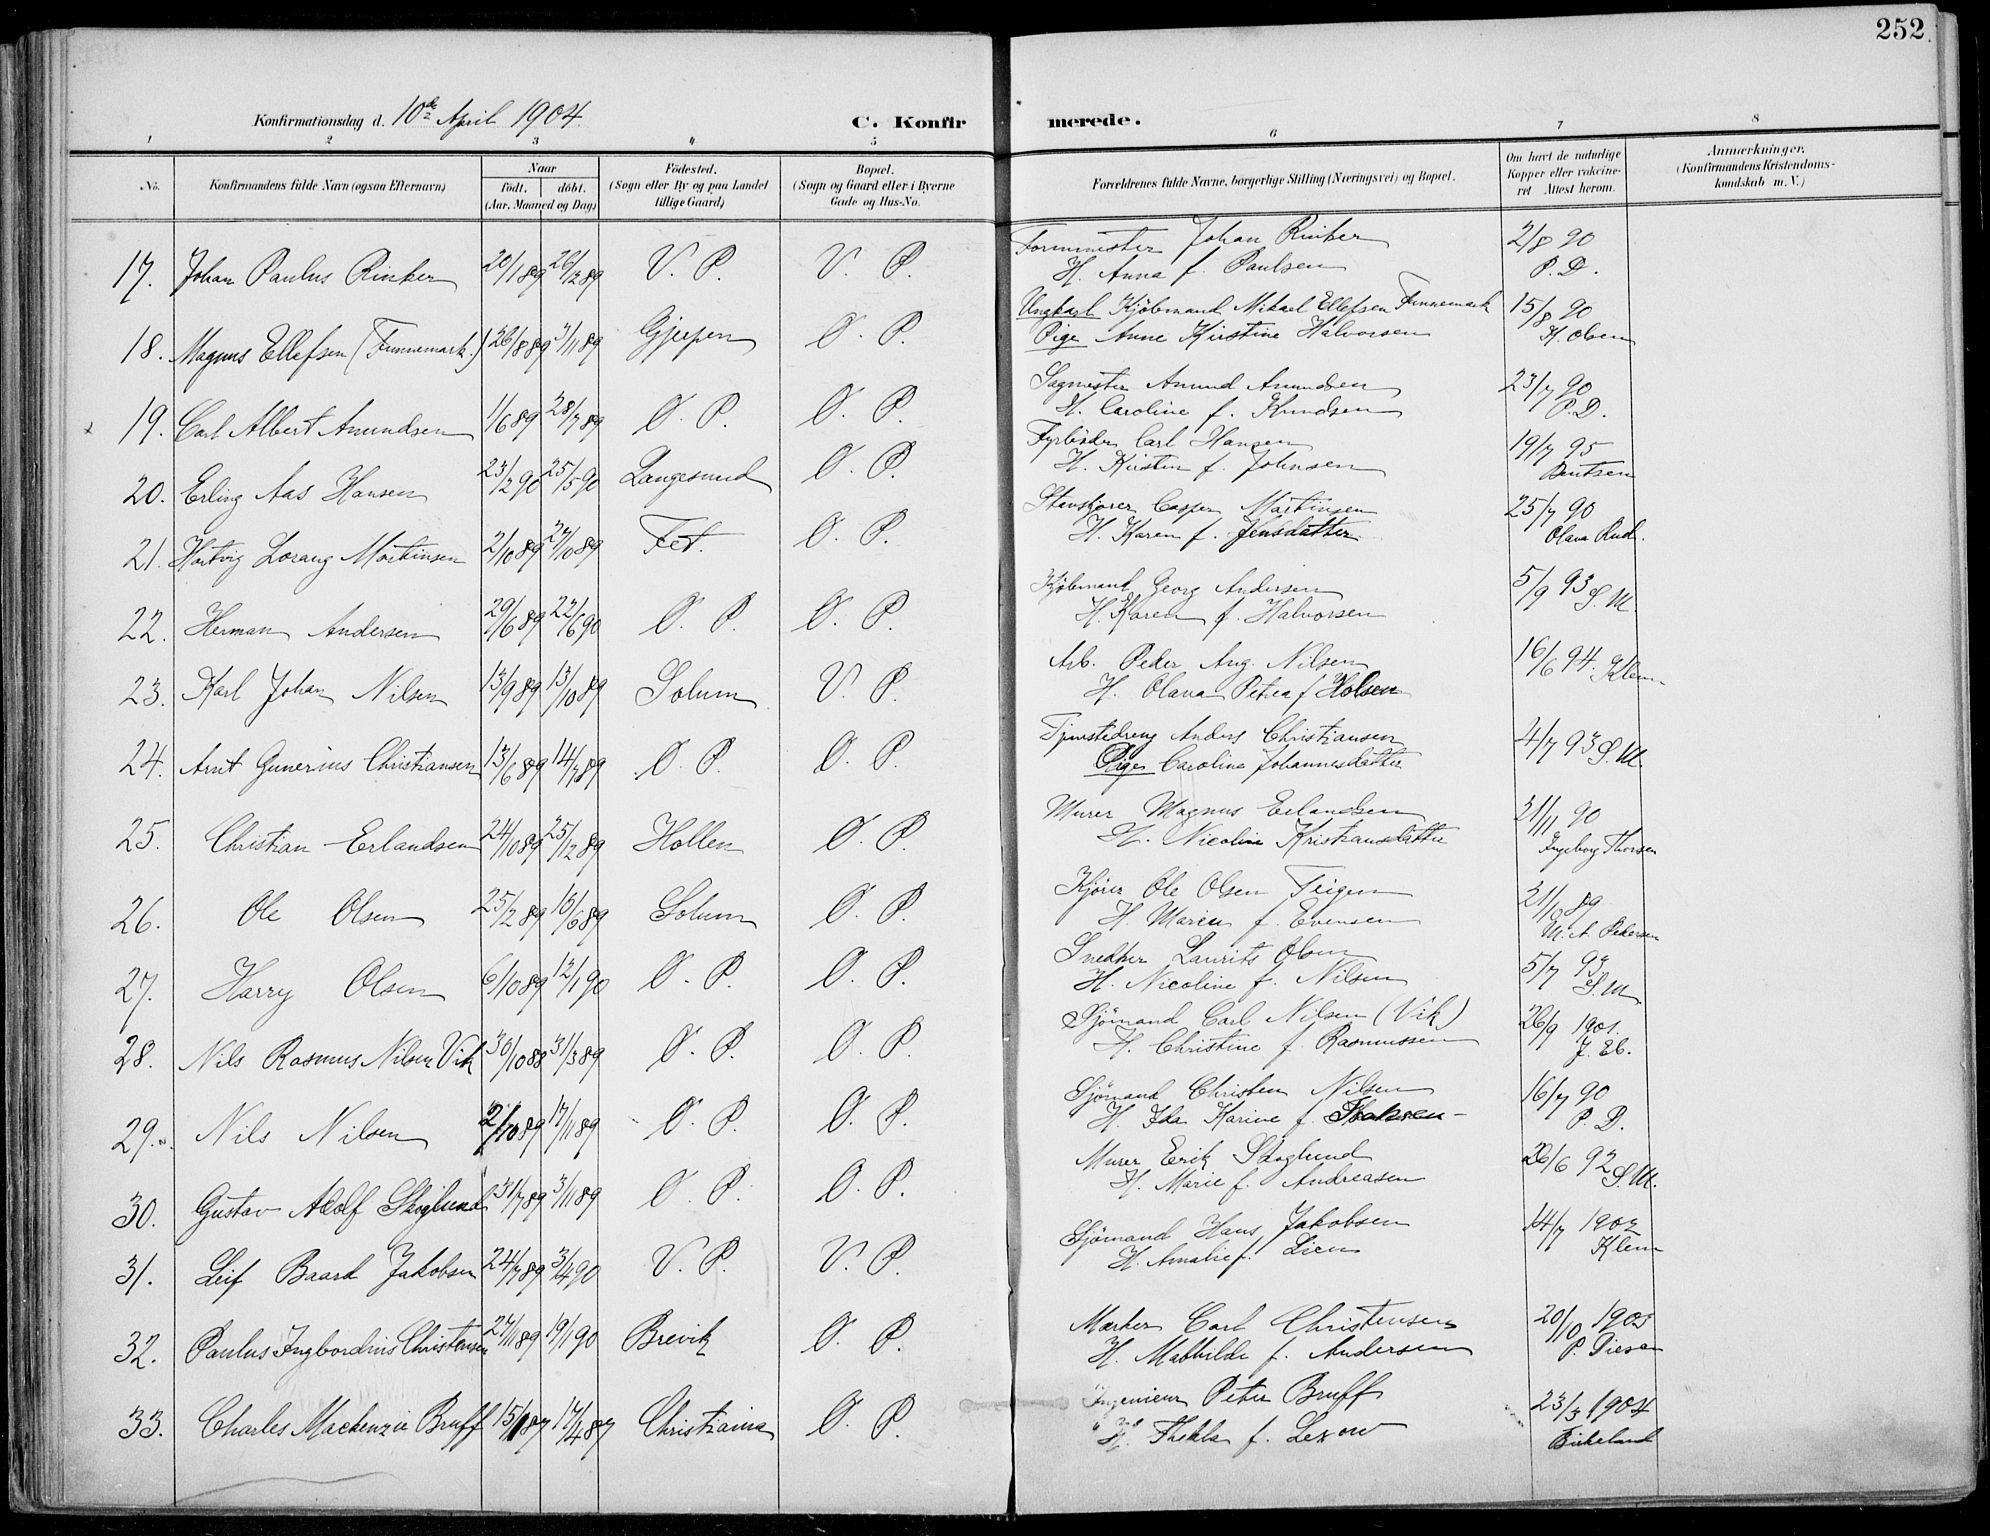 252
Konfirmationsdag d. 10de April 1904.
C. Konfirmerede.
1 2 3 4 5 6 7 8
No.
Konfirmandens fulde Navn (ogsaa Efternavn)
Naar
födt. döbt.
(Aar, Maaned og Dag)
Födested.
(Sogn eller By og paa Landet
tillige Gaard)
Bopæl.
(Sogn og Gaard eller i Byerne
Gade og Hus-No.
Forældrenes fulde Navne, borgerlige Stilling (Næringsvei) og Bopæl.
Om havt de naturlige
Kopper eller vakcine-
ret Attest herom.
Anmærkninger.
(Konfirmandens Kristendoms-
kundskab m. V.)
17. Johan Paulus Rinker 20/1 89 26/3 89 V. P. V. P. Formmester Johan Rinker 2/8 90
H. Anna f. Paulsen P. D.
18. Magnus Ellefsen (Finnemark.) 26/8 89 3/11 89 Gjerpen O. P. Ungkarl Kjøbmand Mikael Ellefsen Finnemark 15/8 90
Pige Anne Kirstine Halvorsen H. Olsen
19. Carl Albert Amundsen 1/6 89 28/7 89 O. P. O. P. Sagmester Amund Amundsen 23/7 90
H. Caroline f. Knudsen P. D.
20. Erling Aas Hansen 23/2 90 25/5 90 Langesund O. P. Fyrbøder Carl Hansen 19/7 95
H. Kirstin f. Johnsen Bentsen
21. Hartvig Lorang Martinsen 2/10 89 27/10 89 Fet. O. P. Stenskjører Casper Martinsen 25/7 90
H. Karen f. Jensdatter Olava Rud.
22. Herman Andersen 29/6 89 22/6 90 O. P. O. P. Kjøbmand Georg Andersen 5/9 93 S. M.
H. Karen f. Halvorsen
23. Karl Johan Nilsen 13/9 89 13/10 89 Solum V. P. Arb. Peder Aug. Nilsen 16/6 94. Klem
H. Olava Petrea f Holsen
24. Arnt Gunerius Christiansen 13/6 89 14/7 89 O. P. O. P. Tjenestedreng Anders Christiansen 4/7 93 S. M.
Pige Caroline Johannesdatter
25. Christian Erlandsen 24/10 89 25/12 89 Hollen O. P. Murer Magnus Erlandsen 21/11 90
H. Nicoline Kristiansdatter Ingeborg Thorsen
26. Ole Olsen 25/2 89 16/6 89 Solum O. P. Kjører Ole Olsen Teigen 21/10 89
H. Maren f. Evensen M. A. Pedersen
27. Harry Olsen 6/10 89 12/1 90 O. P. O. P. Snedker Laurits Olsen 5/7 93
H. Nicoline f. Nilsen S. M.
28. Nils Rasmus Nilsen Vik 30/10 88 31/3 89 O. P. O. P. Sjømand Carl Nilsen (Vik) 26/9 1901.
H. Christine f. Rasmussen J. Eb.
29. Nils Nilsen 2/10 89 17/11 89 O. P. O. P. Sjømand Christen Nilsen 16/7 90
H. Ida Karine f. Isaksen P. D.
30. Gustav Adolf Skoglund 31/7 89 3/11 89 O. P. O. P. Murer Erik Skoglund 26/6 92 S. M.
H. Marie f. Andreasen
31. Leif Baard Jakobsen 24/7 89 3/4 90 V. P. V. P. Sjømand Hans Jakobsen 14/7 1902
H. Amalie f. Lien Klem
32. Paulus Ingbordius Christensen 27/11 89 19/1 90 Brevik O. P. Mærker Carl Christensen 20/10 1903
H. Mathilde f. Andersen P.
33. Charles Mackenzie Bruff 15/1 87 17/4 87 Christiania O. P. Ingenieur Peter Bruff 23/3 1904
H. Thekla f. Lexow Birkeland